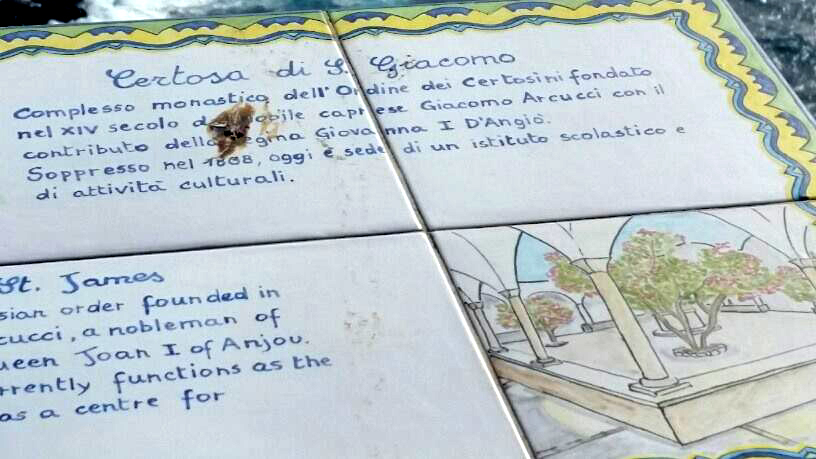 Certosa di S. Giacomo
Complesso monastico dell'Ordine dei Certosini fondato
nel XIV secolo caprese Giacomo Arcucci con il
contributo della Giovanna I D'Angiò.
Soppresso nel 1808, oggi è sede di un istituto scolastico e
di attività culturali.
St. James
sian order founded in
cucci, a nobleman of
ueen Joan I of Anjou.
rrently functions as the
as a centre for